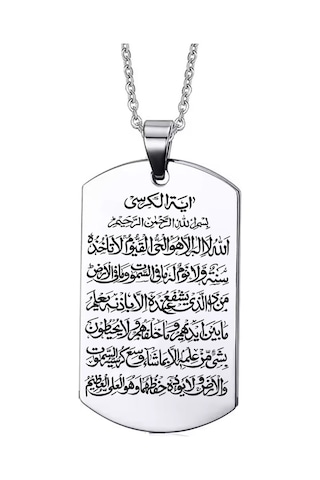 آية الكرسي
بسم الله الرحمن الرحيم
الله لا اله الا هو الحي القيوم لا تاخذه
سنة ولا نوم له ما في السموات وما في الارض
من ذا الذي يشفع عنده الا باذنه يعلم
ما بين ايديهم وما خلفهم ولا يحيطون
بشيء من علمه الا بما شاء وسع كرسيه السموات
والارض ولا يؤده حفظهما وهو العلي العظيم